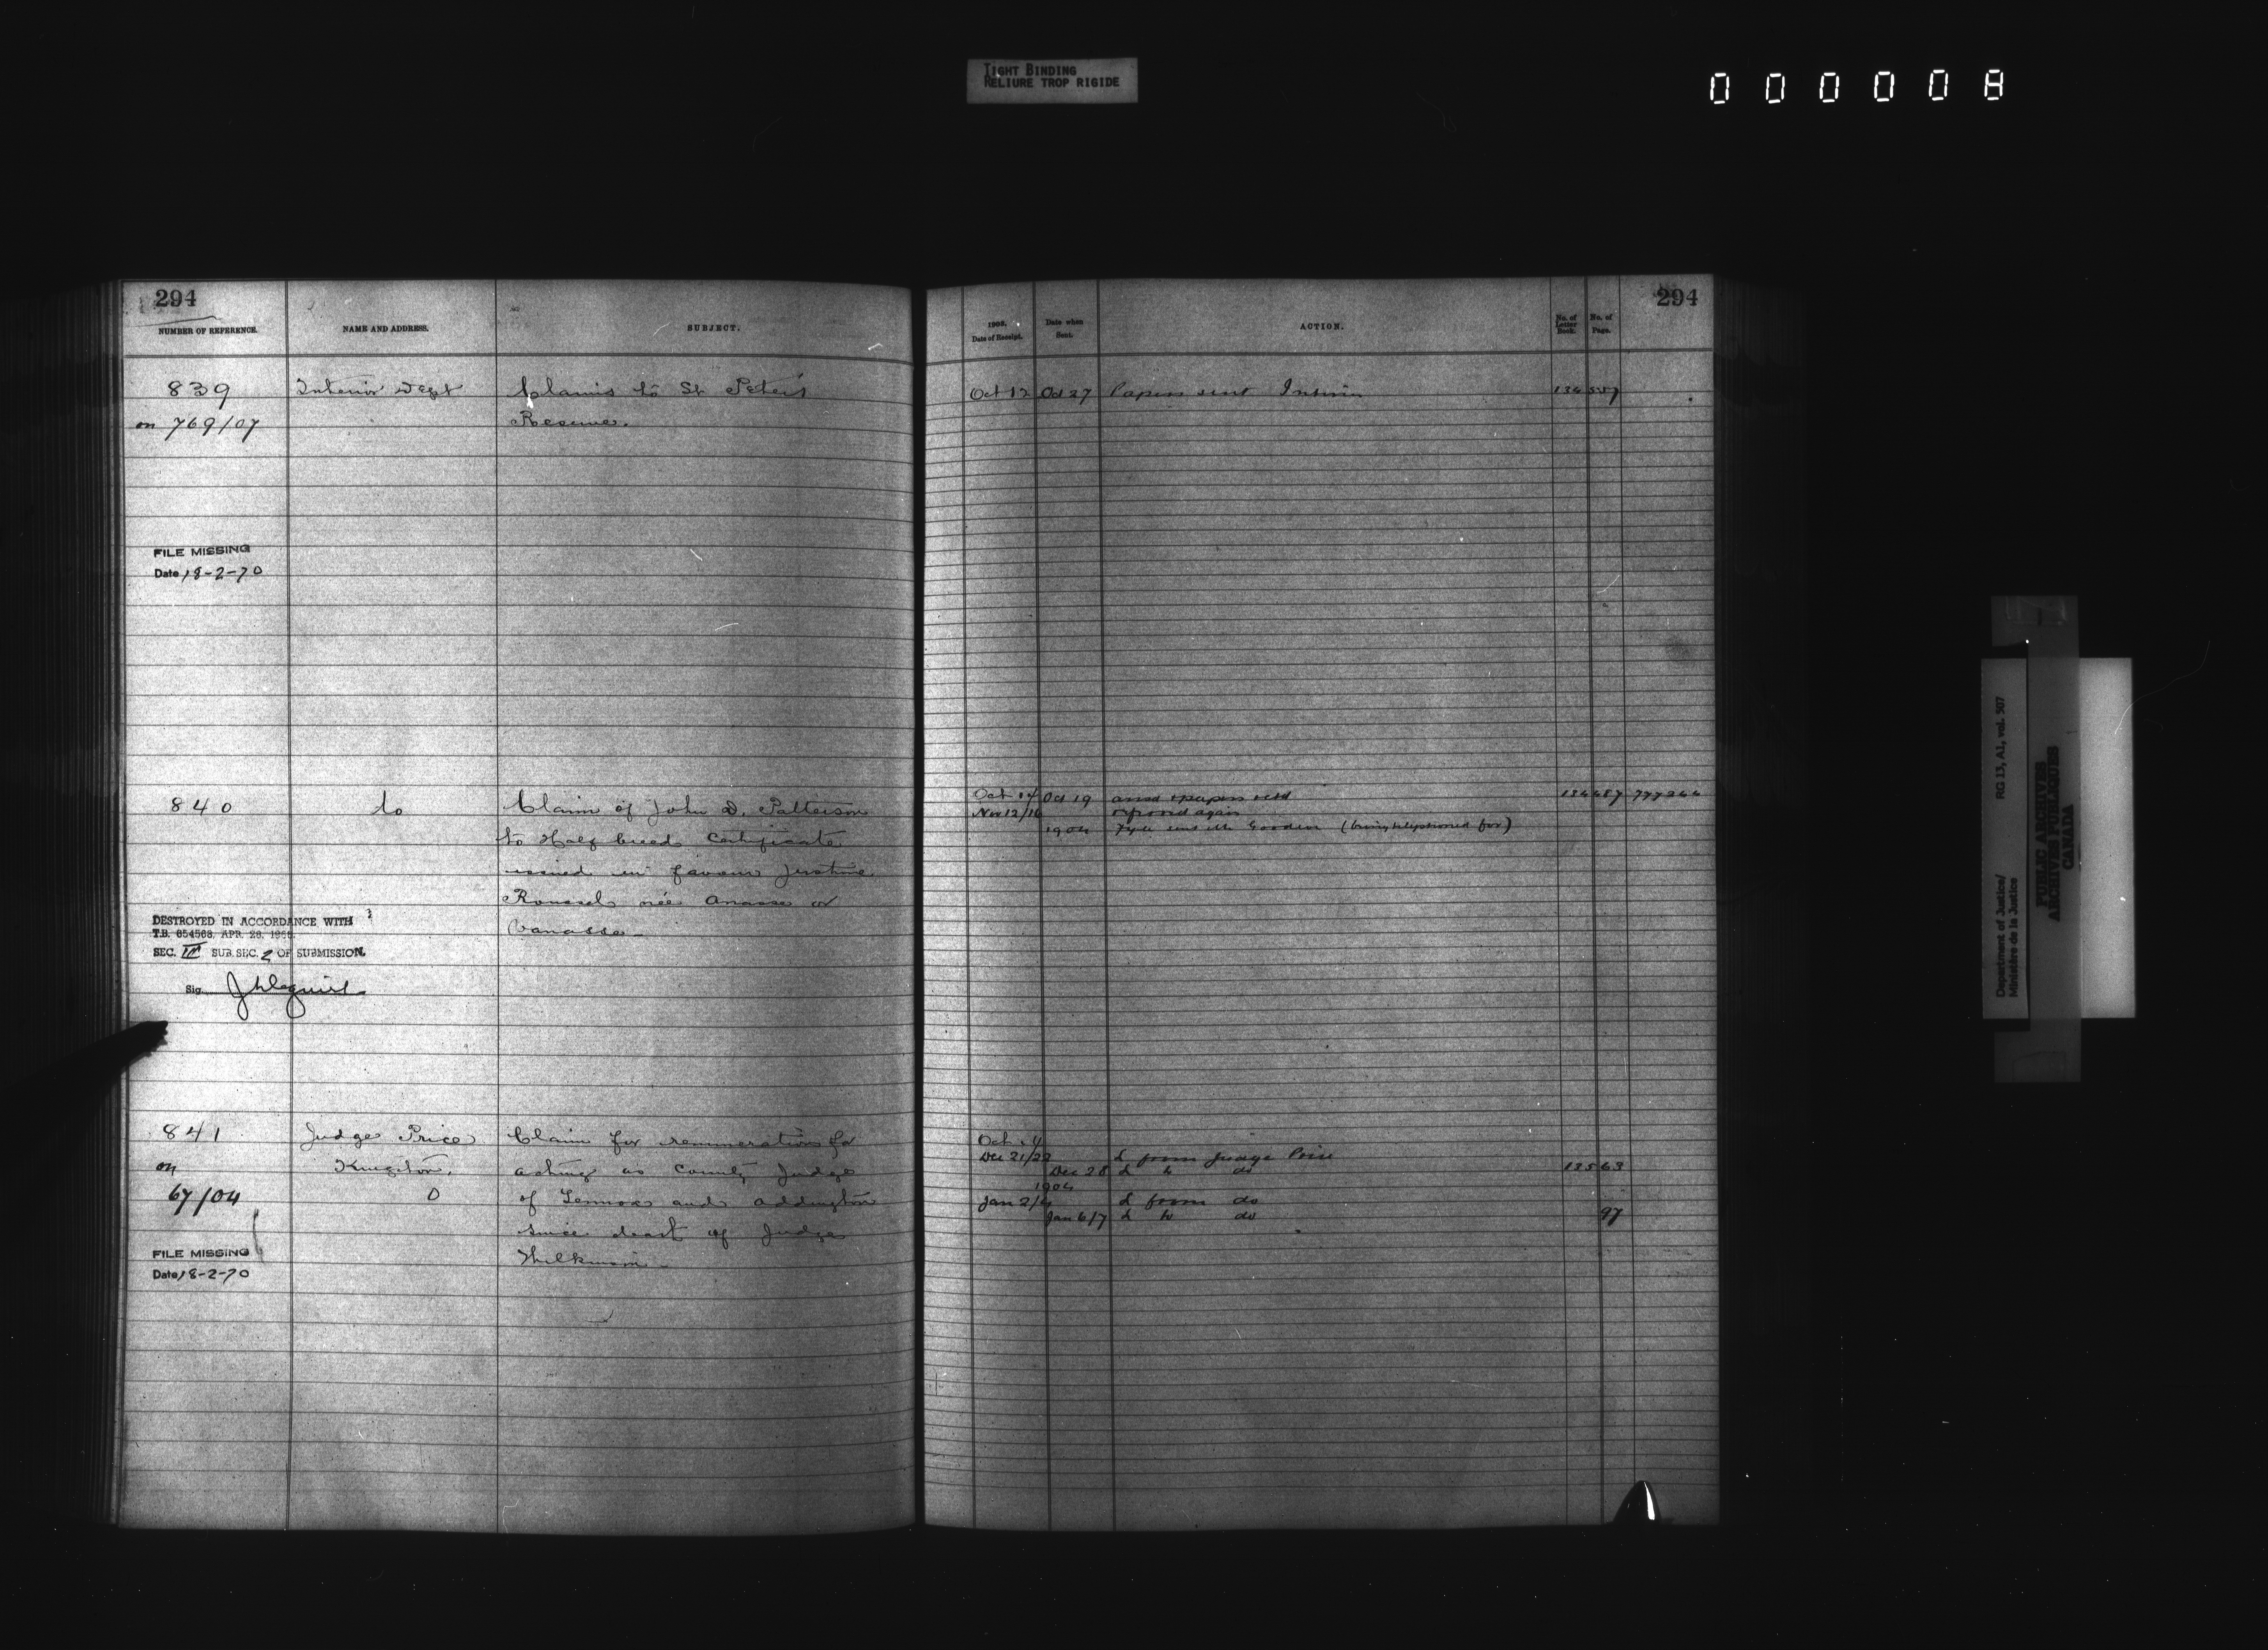 TIGHT BINDING
RELIURE TROP RIGIDE
000008
294
NUMBER OF REFERENCE.
NAME AND ADDRESS.
SUBJECT.
839
Interior Dept
Claims to St Peter's
on 769/07
Reserve.
FILE MISSING
Date 18-2-70
840
do
Claim of John D. Patterson
to Half breed Certificate
issued in favour Justine
Roussel née Anasse or
Vanasse
DESTROYED IN ACCORDANCE WITH
T.B. 654568, APR. 28,
SEC. III SUB. SEC. 2 OF SUBMISSION.
Sig.
841
Judge Price
Claim for remuneration for
on
Kingston.
acting as County Judge
67/04
O
of Lennox and Addington
since deart of Judge
Wilkinson
FILE MISSING
Date 18-2-70
294
1903.
Date of Receipt.
Date when
Sent.
ACTION.
No. of
Letter
Book.
No. of
Page.
Oct 12 Oct 27 Papers sent Interior 134 557
Oct 14 Oct 19 ansd & papers retd 134 487
Nov 12/16 referred again
1904 (being telephoned for)
Oct 14
Dec 21/22 L from Judge Price
Dec 28 L to do 135 63
1904
Jan 2/4 L from do
Jan 6/7 L to do 97
Department of Justice/ RG 13, A1, vol. 507
Ministère de la Justice
PUBLIC ARCHIVES
ARCHIVES PUBLIQUES
CANADA